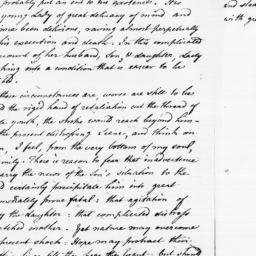 probably put an end to his existence. His
young Lady of great delicacy of mind and
me been delirious, raving almost perpetually
his execution and death. In this complicated
ound of her husband, Son, & daughter, Lady
hing into a condition that is easier to be
these circumstances are, worse are still to be
d the rigid hand of retaliation cut the thread of
te youth, the stroke would reach beyond him-
the present distressing scene, and think on
n, I feel, from the very bottom of my soul,
nity. There is reason to fear that inadvertence
arry the news of the Son's situation to the
d certainly precipitate him into great
mediately prove fatal: that agitation of
y the daughter: that complicated distress
etched mother. Yet nature may overcome
present shock: Hope may protract their
the event: but should
and
with